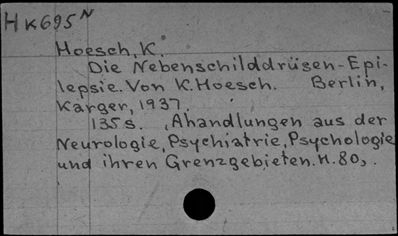 HK695ᴺ
Hoesch, K.
Die Nebenschilddrüsen-Epi-
lepsie. Von K. Hoesch. Berlin,
Karger, 1937.
135 s. (Ahandlungen aus der
Neurologie, Psychiatrie, Psychologie
und ihren Grenzgebieten. H. 80).